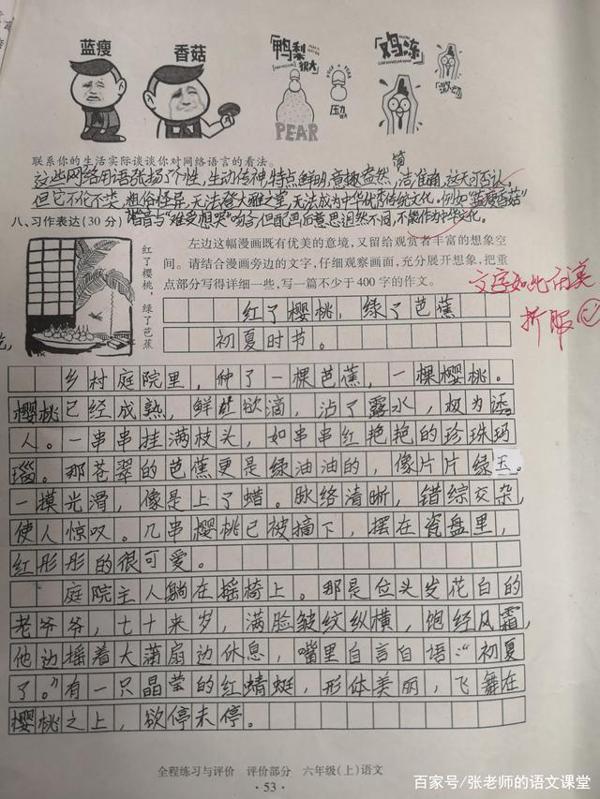 蓝瘦
香菇
鸭梨
很大
压力
PEAR
鸡冻
激动
联系你的生活实际谈谈你对网络语言的看法。
这些网络用语张扬了个性，生动传神，特点鲜明，意趣盎然，简洁准确，这无可否认，
但它不伦不类，粗俗怪异，无法登大雅之堂，无法成为中华优秀传统文化。例如“蓝瘦香菇”
谐音与“难受想哭”吻合，但配画后意思迥然不同，不能作为中华文化。
八、习作表达(30分)
左边这幅漫画既有优美的意境，又留给观赏者丰富的想象空
间。请结合漫画旁边的文字，仔细观察画面，充分展开想象，把重
点部分写得详细一些，写一篇不少于400字的作文。
红了樱桃，绿了芭蕉
文字如此的美
折服
红了樱桃，绿了芭蕉
初夏时节。
乡村庭院里，种了一棵芭蕉，一棵樱桃。
樱桃已经成熟，鲜艳欲滴，沾了露水，极为诱
人。一串串挂满枝头，如串串红艳艳的珍珠玛
瑙。那苍翠的芭蕉更是绿油油的，像片片绿玉。
一摸光滑，像是上了蜡。脉络清晰，错综交杂，
使人惊叹。几串樱桃已被摘下，摆在瓷盘里，
红彤彤的很可爱。
庭院主人躺在摇椅上。那是位头发花白的
老爷爷，七十来岁，满脸皱纹纵横，饱经风霜，
他边摇着大蒲扇边休息，嘴里自言自语：“初夏
了。”有一只晶莹的红蜻蜓，形体美丽，飞舞在
樱桃之上，欲停未停。
全程练习与评价 评价部分 六年级(上)语文
·53·
百家号/张老师的语文课堂